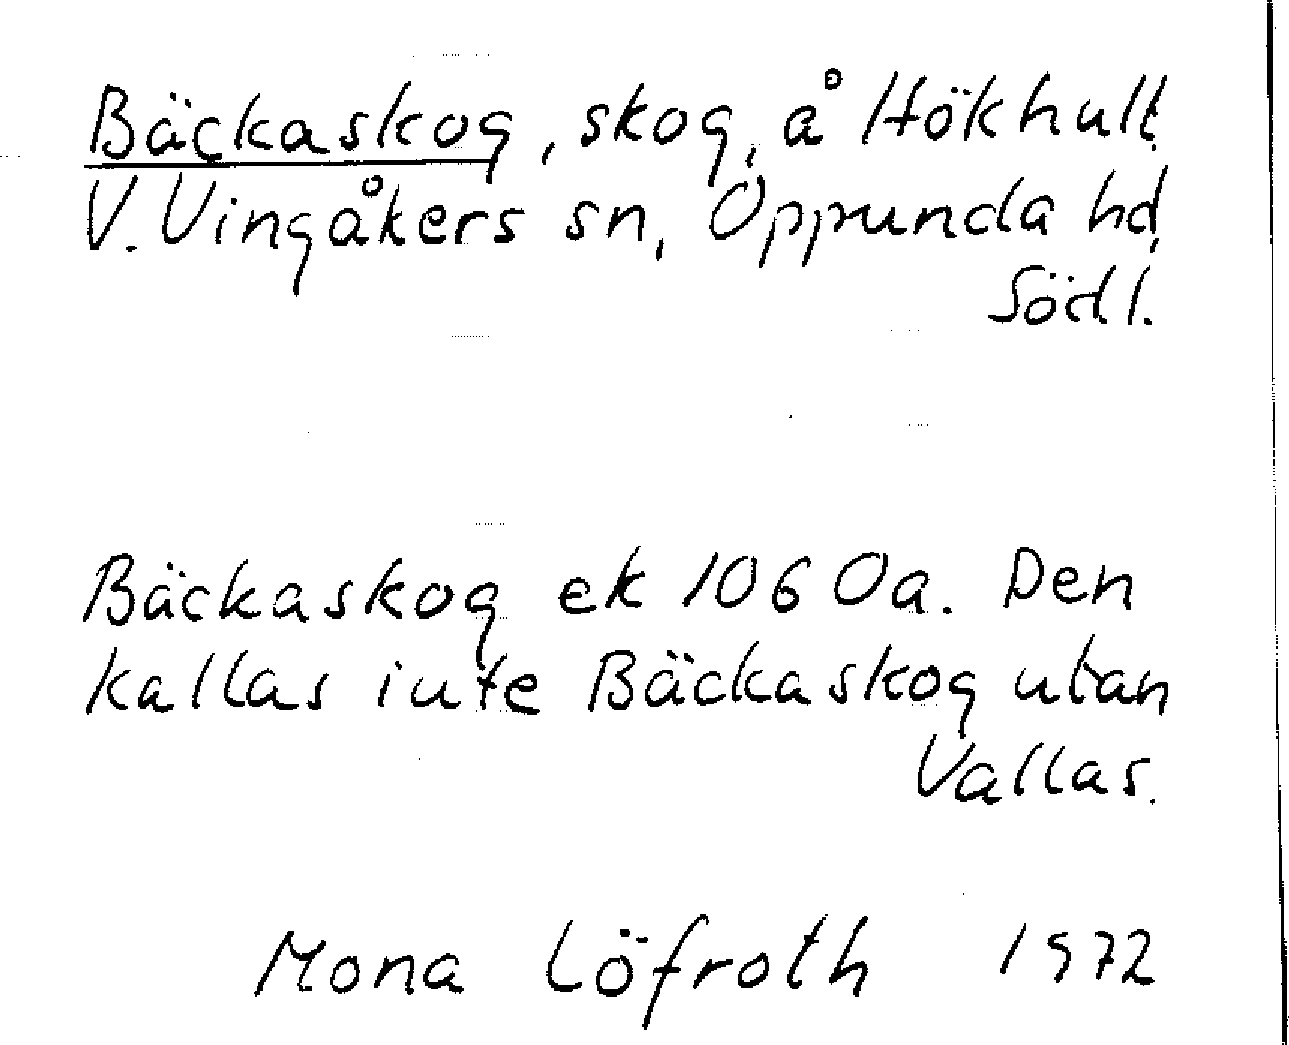 Bäckaskog, skog, å Hökhult
V. Vingåkers sn, Oppunda hd,
Södl.
Bäckaskog ek 106 Oa. Den
kallas inte Bäckaskog utan
Vallas.
Mona Löfroth 1972